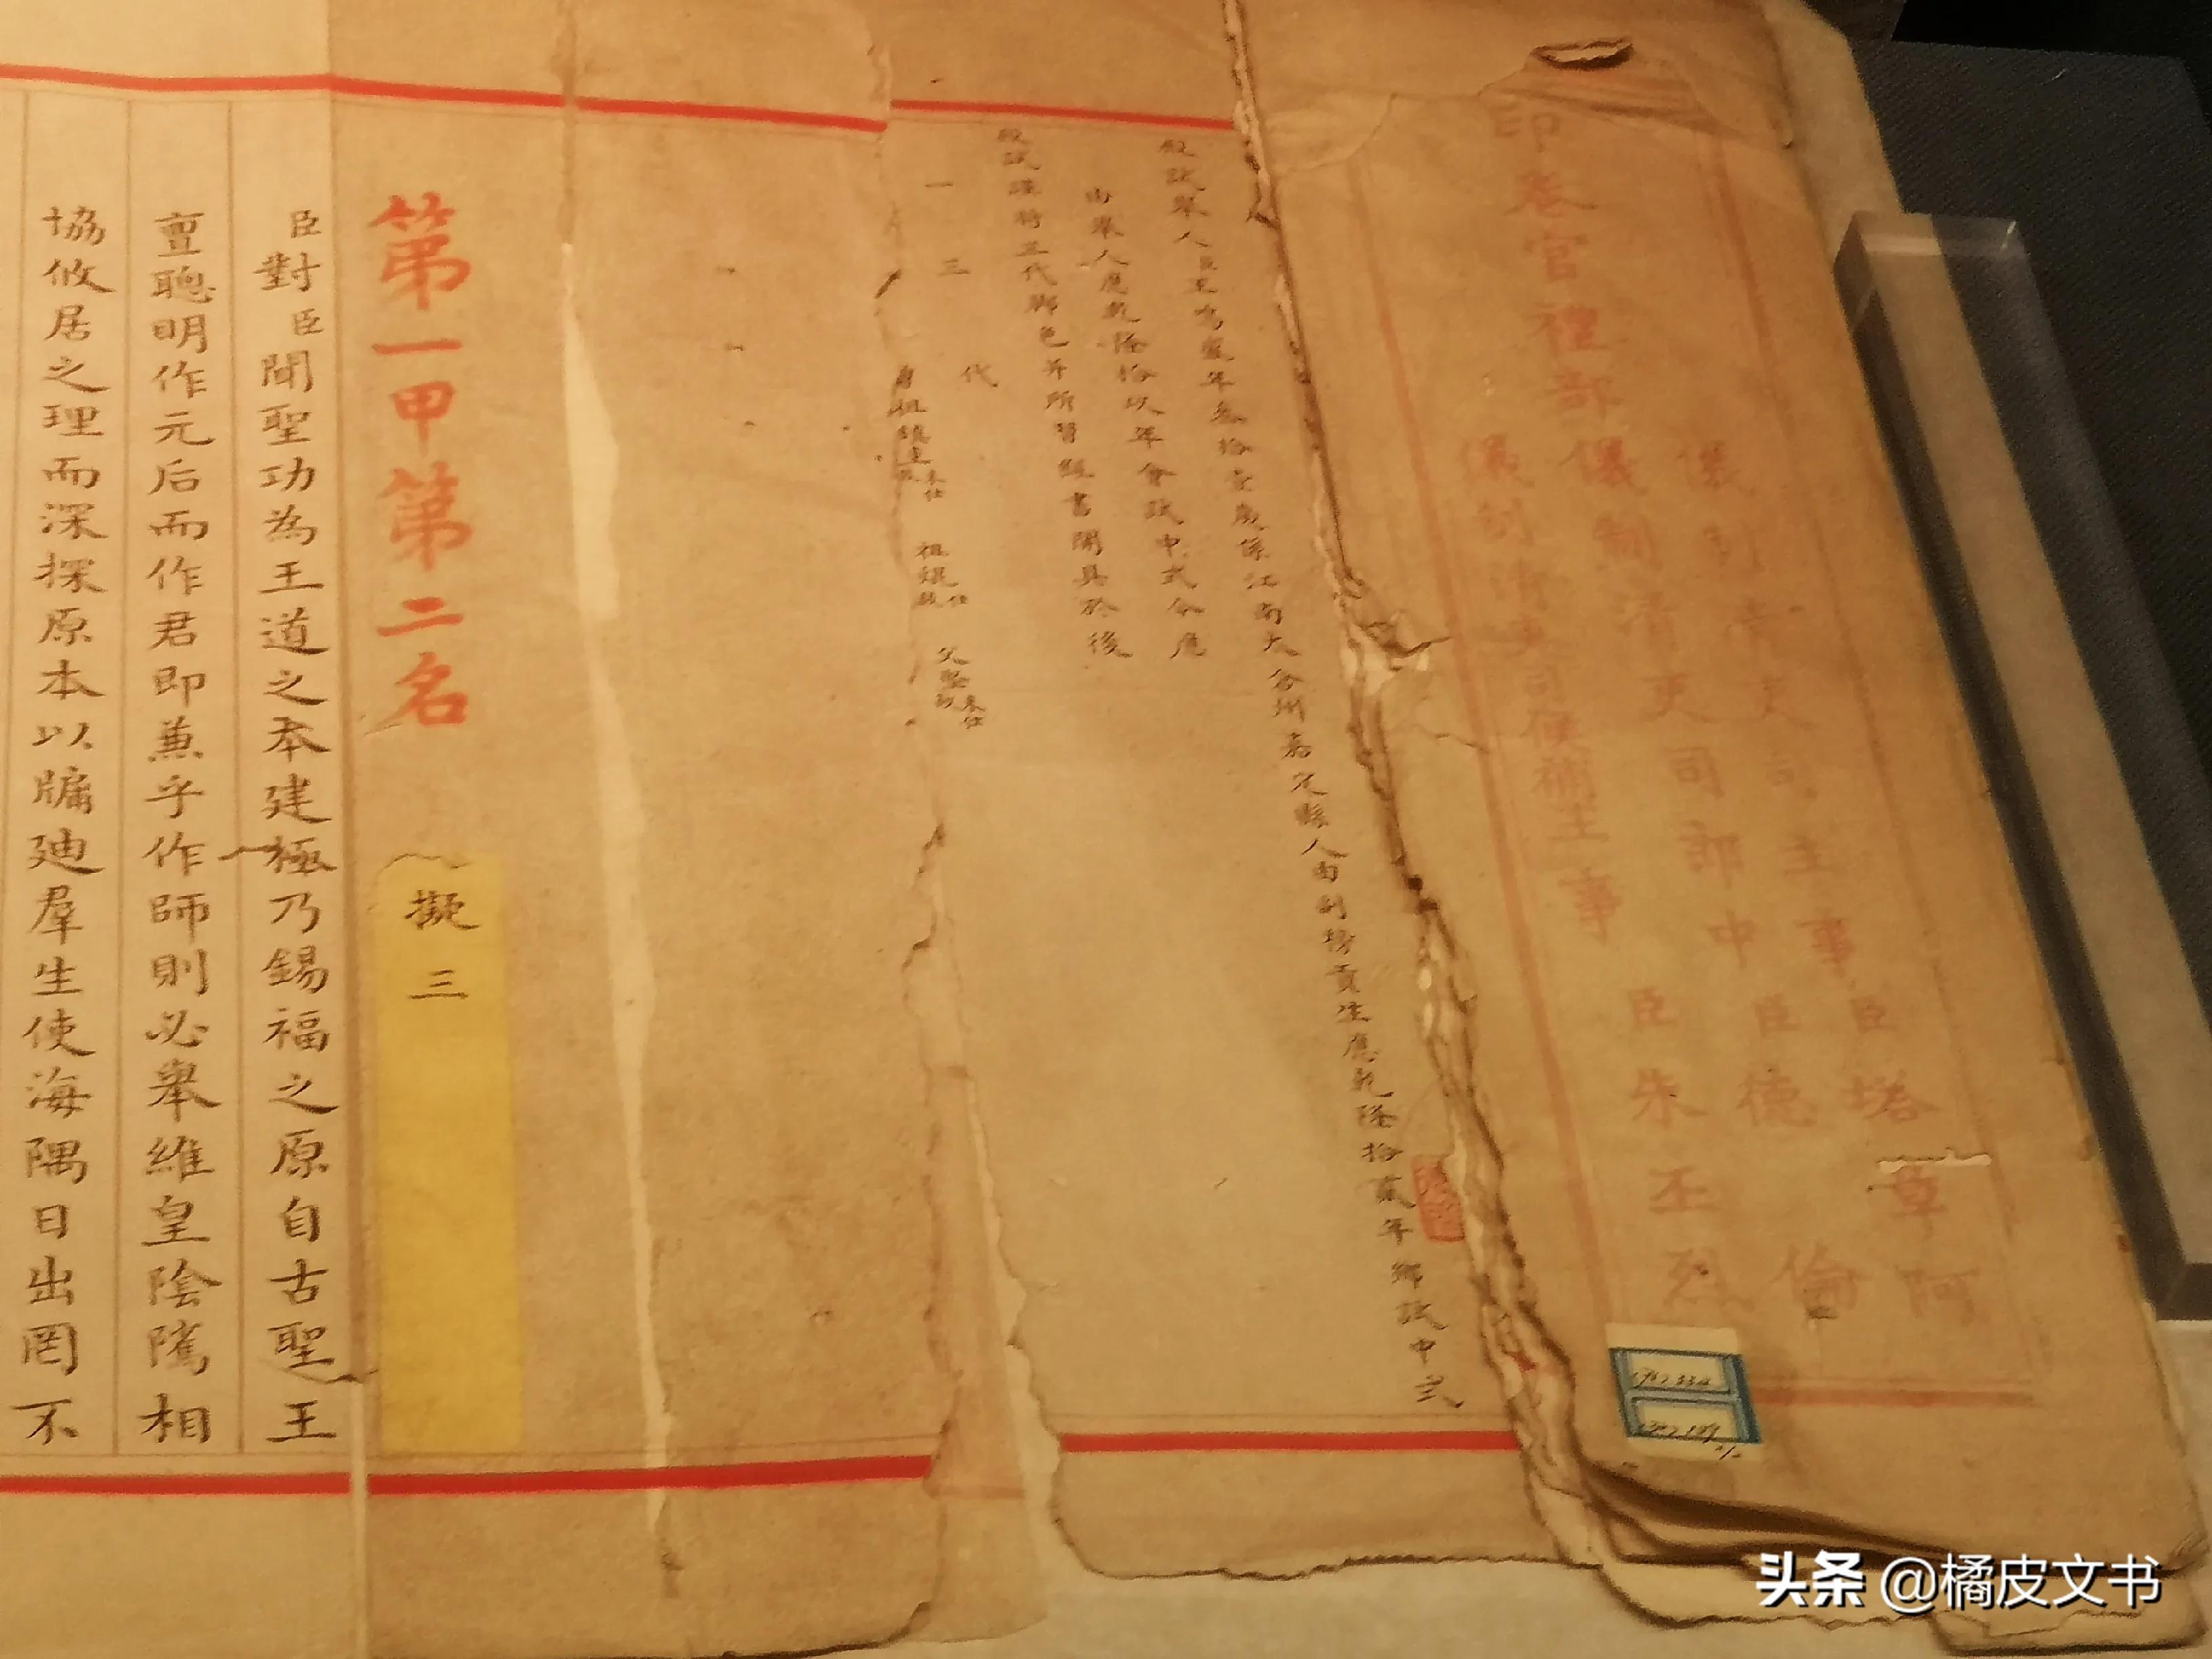 印卷官禮部儀制清吏司郎中臣德倫
儀制清吏司主事臣塔章阿
儀制清吏司候補主事臣朱丕烈
殿試舉人臣王鳴盛年叁拾壹歲係江南太倉州嘉定縣人由副榜貢生應乾隆拾貳年鄉試中式
由舉人應乾隆拾玖年會試中式今應
殿試謹將三代腳色并所習經書開具於後
一三代
祖焜 仕 父 未仕
第一甲第二名
擬三
臣對臣聞聖功為王道之本建極乃錫福之原自古聖王
亶聰明作元后而作君即兼乎作師則必舉維皇陰隲相
協攸居之理而深探原本以牖廸羣生使海隅日出罔不
头条 @橘皮文书